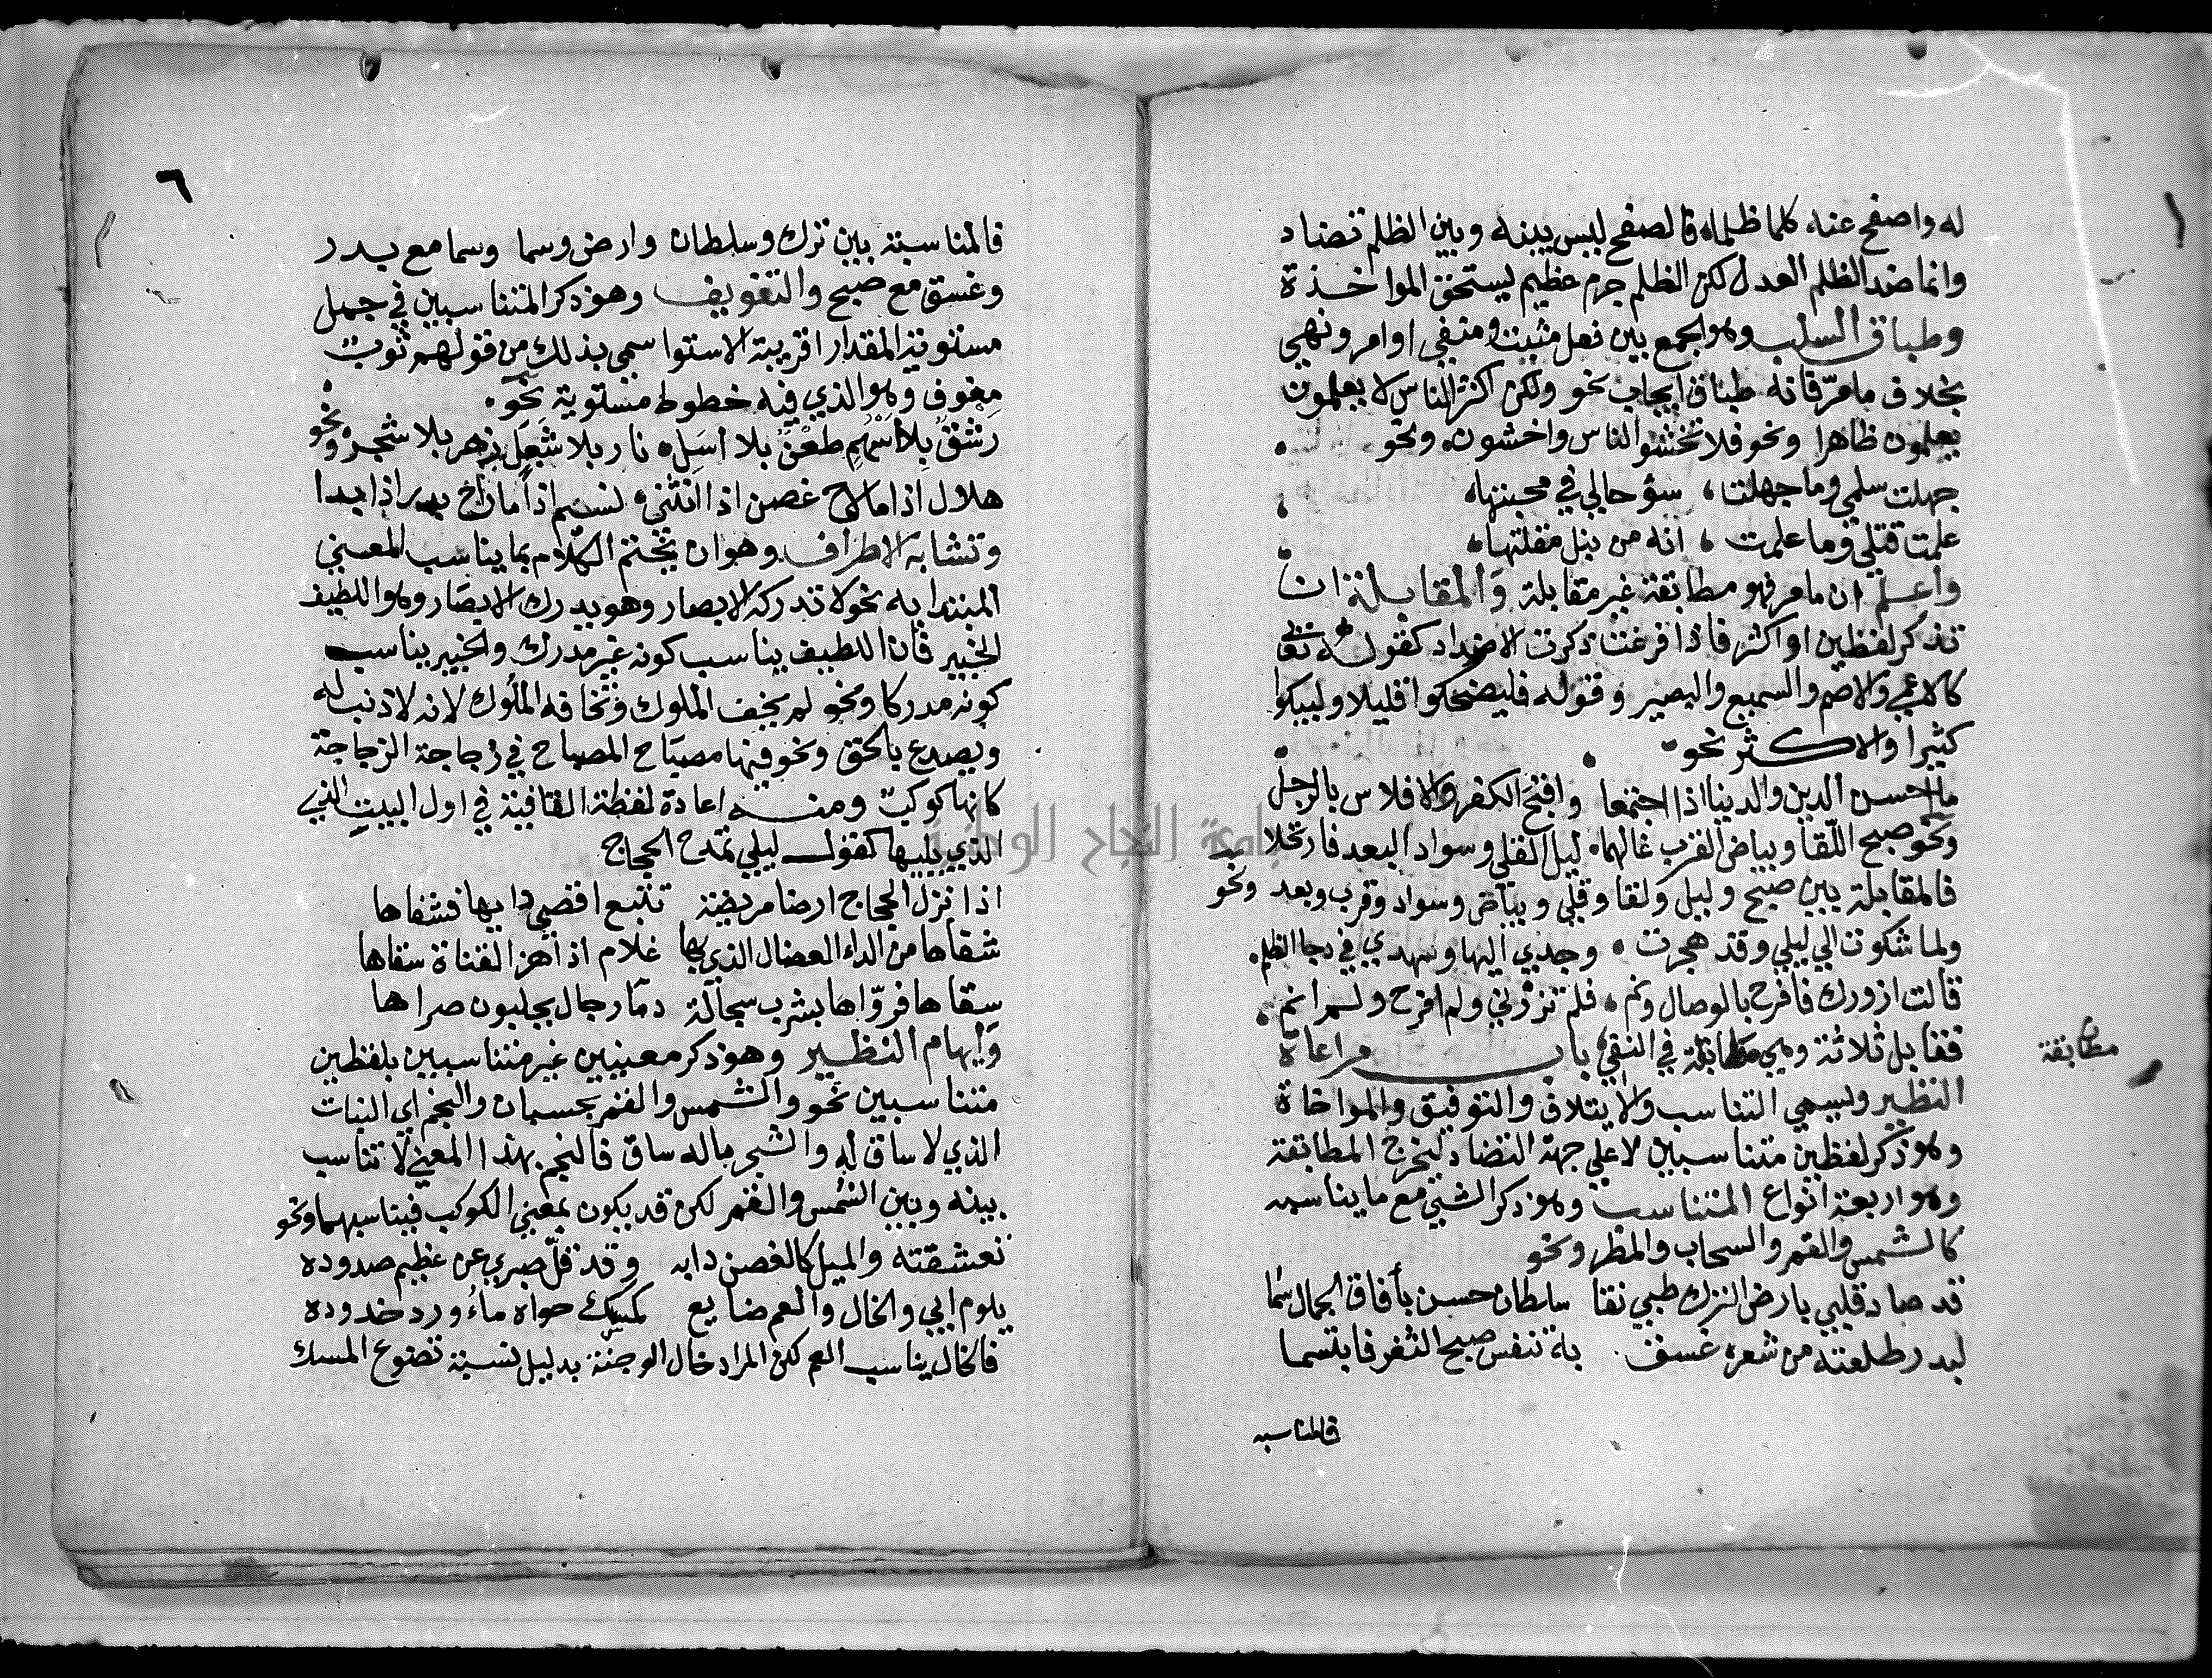 له واصفح عنه كلما ظلماه فالصفح ليس بينه وبين الظلم تضاد
وانما ضد الظلم العدل لكن الظلم جرم عظيم يستحق المواخذة
وطباق السلب وهو الجمع بين فعل مثبت ومنفي او امر ونهي
بخلاف ما مرّ فانه طباق ايجاب نحو ولكن اكثر الناس لا يعلمون
يعلمون ظاهرا ونحو فلا تخشوا الناس واخشون ونحو
جهلت سلمى وما جهلت سؤ حالي في محبتها
علمت قتلي وما علمت انه من نبل مقلتها
واعلم ان ما مر فهو مطابقة غير مقابلة والمقابلة ان
تذكر لفظين او اكثر فاذا فرغت ذكرت الاضداد كقوله تعالى
كالاعمى والاصم والسميع والبصير وقوله فليضحكوا قليلا وليبكوا
كثيرا والاكثر نحو
ما احسن الدين والدنيا اذا اجتمعا واقبح الكفر والافلاس بالرجل
ونحو صبح اللقا وبياض القرب غالهما ليل القلى وسواد البعد فارتحلا
فالمقابلة بين صبح وليل ولقا وقلى وبياض وسواد وقرب وبعد ونحو
ولما شكوت الى ليلى وقد هجرت وجدي اليها وسهدي في دجا الظلم
قالت ازورك فافرح بالوصال ونم فلم تزرني ولم افرح ولم انم
فقابل ثلاثة وهي مطابقة في النفي باب مراعاة
مطابقة
النظير ويسمى التناسب والايتلاف والتوفيق والمواخاة
وهو ذكر لفظين متناسبين لا على جهة التضاد ليخرج المطابقة
وهو اربعة انواع المتناسب وهو ذكر الشي مع ما يناسبه
كالشمس والقمر والسحاب والمطر ونحو
قد صاد قلبي بارض الترك ظبي نقا سلطان حسن بأفاق الجمال سما
لبدر طلعته من شعره غسق به تنفس صبح الثغر فابتسما
فالمناسبه
٦
فالمناسبة بين ترك وسلطان وارض وسما وسما مع بدر
وغسق مع صبح والتفويف وهو ذكر المتناسبين في جمل
مستوية المقدار او قريبة الاستوا سمي بذلك من قولهم ثوب
مفوف وهو الذي فيه خطوط مستوية نحو
رشق بلا اسهم طعن بلا اسله نار بلا شعل زهر بلا شجر ونحو
هلال اذا ما لاح غصن اذا انثنى نسيم اذا ما راح بدر اذا بدا
وتشابه الاطراف وهو ان يختم الكلام بما يناسب المعنى
المبتدا به نحو لا تدركه الابصار وهو يدرك الابصار وهو اللطيف
الخبير فان اللطيف يناسب كونه غير مدرك والخبير يناسب
كونه مدركا ونحو لم يخف الملوك وتخافه الملوك لانه لا ذنب له
ويصدع بالحق ونحو فيها مصباح المصباح في زجاجة الزجاجة
كانها كوكب ومنه اعادة لفظة القافية في اول البيت الذي
الذي يليها كقول ليلى تمدح الحجاج
اذا نزل الحجاج ارضا مريضة تتبع اقصى دايها فشفاها
شفاها من الداء العضال الذي بها غلام اذا هز القناة سقاها
سقاها فروّاها بشرب سجالة دمًا رجال يجلبون صراها
وايهام النظير وهو ذكر معنيين غير متناسبين بلفظين
متناسبين نحو والشمس والقمر بحسبان والنجم اي النبات
الذي لا ساق له والشجر ماله ساق فالنجم بهذا المعنى لا تناسب
بينه وبين الشمس والقمر لكن قد يكون بمعنى الكوكب فيناسبهما ونحو
تعشقته والميل كالغصن دابه وقد قلّ صبري عن عظيم صدوده
يلوم ابي والخال والعم ضايع كمسك حواه ماء ورد خدوده
فالخال يناسب العم لكن المراد خال الوجنة بدليل نسبة تضوع المسك
جامعة النجاح الوطنية